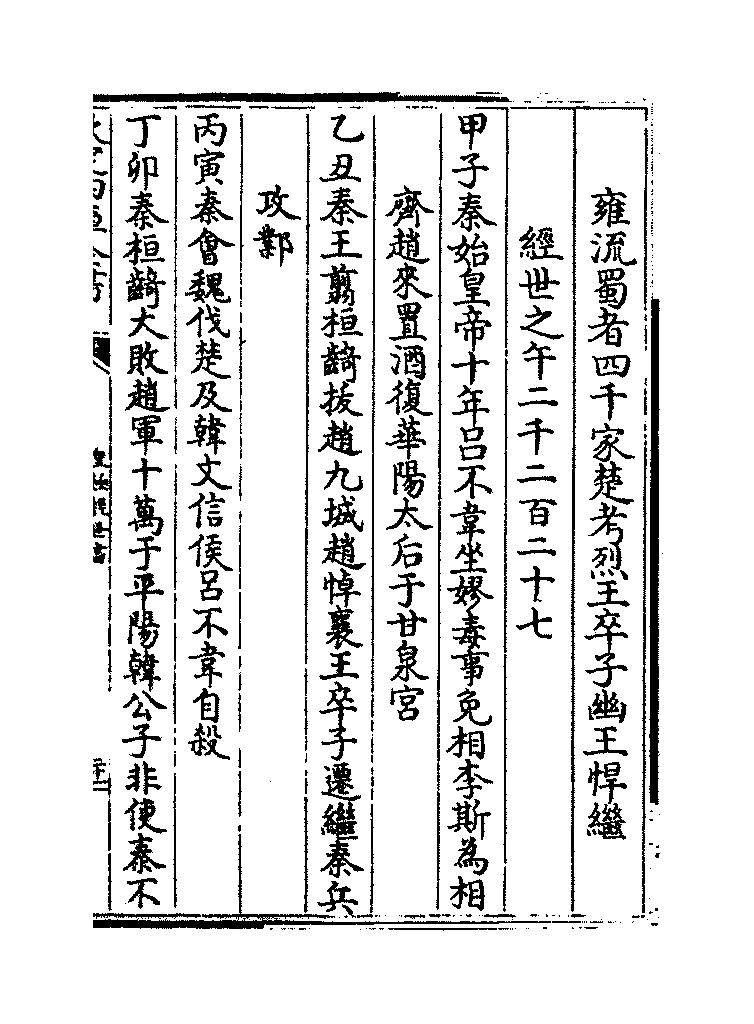 雍流蜀者四千家楚考烈王卒子幽王悍繼
經世之午二千二百二十七
甲子秦始皇帝十年吕不韋坐嫪毐事免相李斯為相
齊趙來置酒復華陽太后于甘泉宮
乙丑秦王翦桓齮拔趙九城趙悼襄王卒子遷繼秦兵
攻鄴
丙寅秦會魏伐楚及韓文信侯吕不韋自殺
丁卯秦桓齮大敗趙軍十萬于平陽韓公子非使秦不
皇極經世書